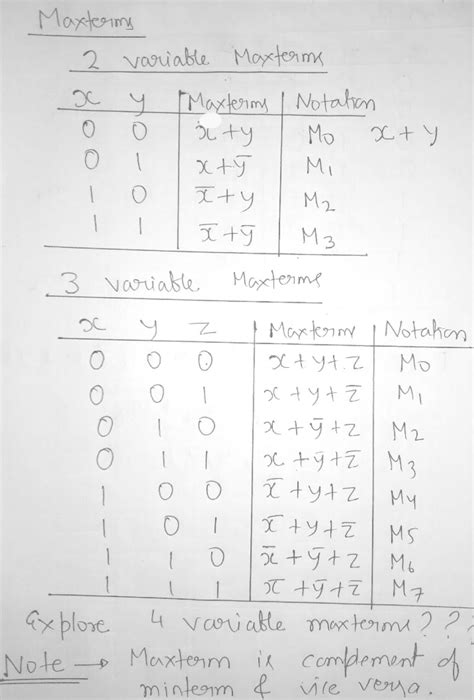 Maxterms
2 variable Maxterms
x y Maxterms Notation
0 0 x+y M0 x+y
0 1 x+ȳ M1
1 0 x̄+y M2
1 1 x̄+ȳ M3
3 variable Maxterms
x y z Maxterms Notation
0 0 0 x+y+z M0
0 0 1 x+y+z̄ M1
0 1 0 x+ȳ+z M2
0 1 1 x+ȳ+z̄ M3
1 0 0 x̄+y+z M4
1 0 1 x̄+y+z̄ M5
1 1 0 x̄+ȳ+z M6
1 1 1 x̄+ȳ+z̄ M7
Explore 4 variable maxterms???
Note → Maxterm is complement of
minterm & vice versa.